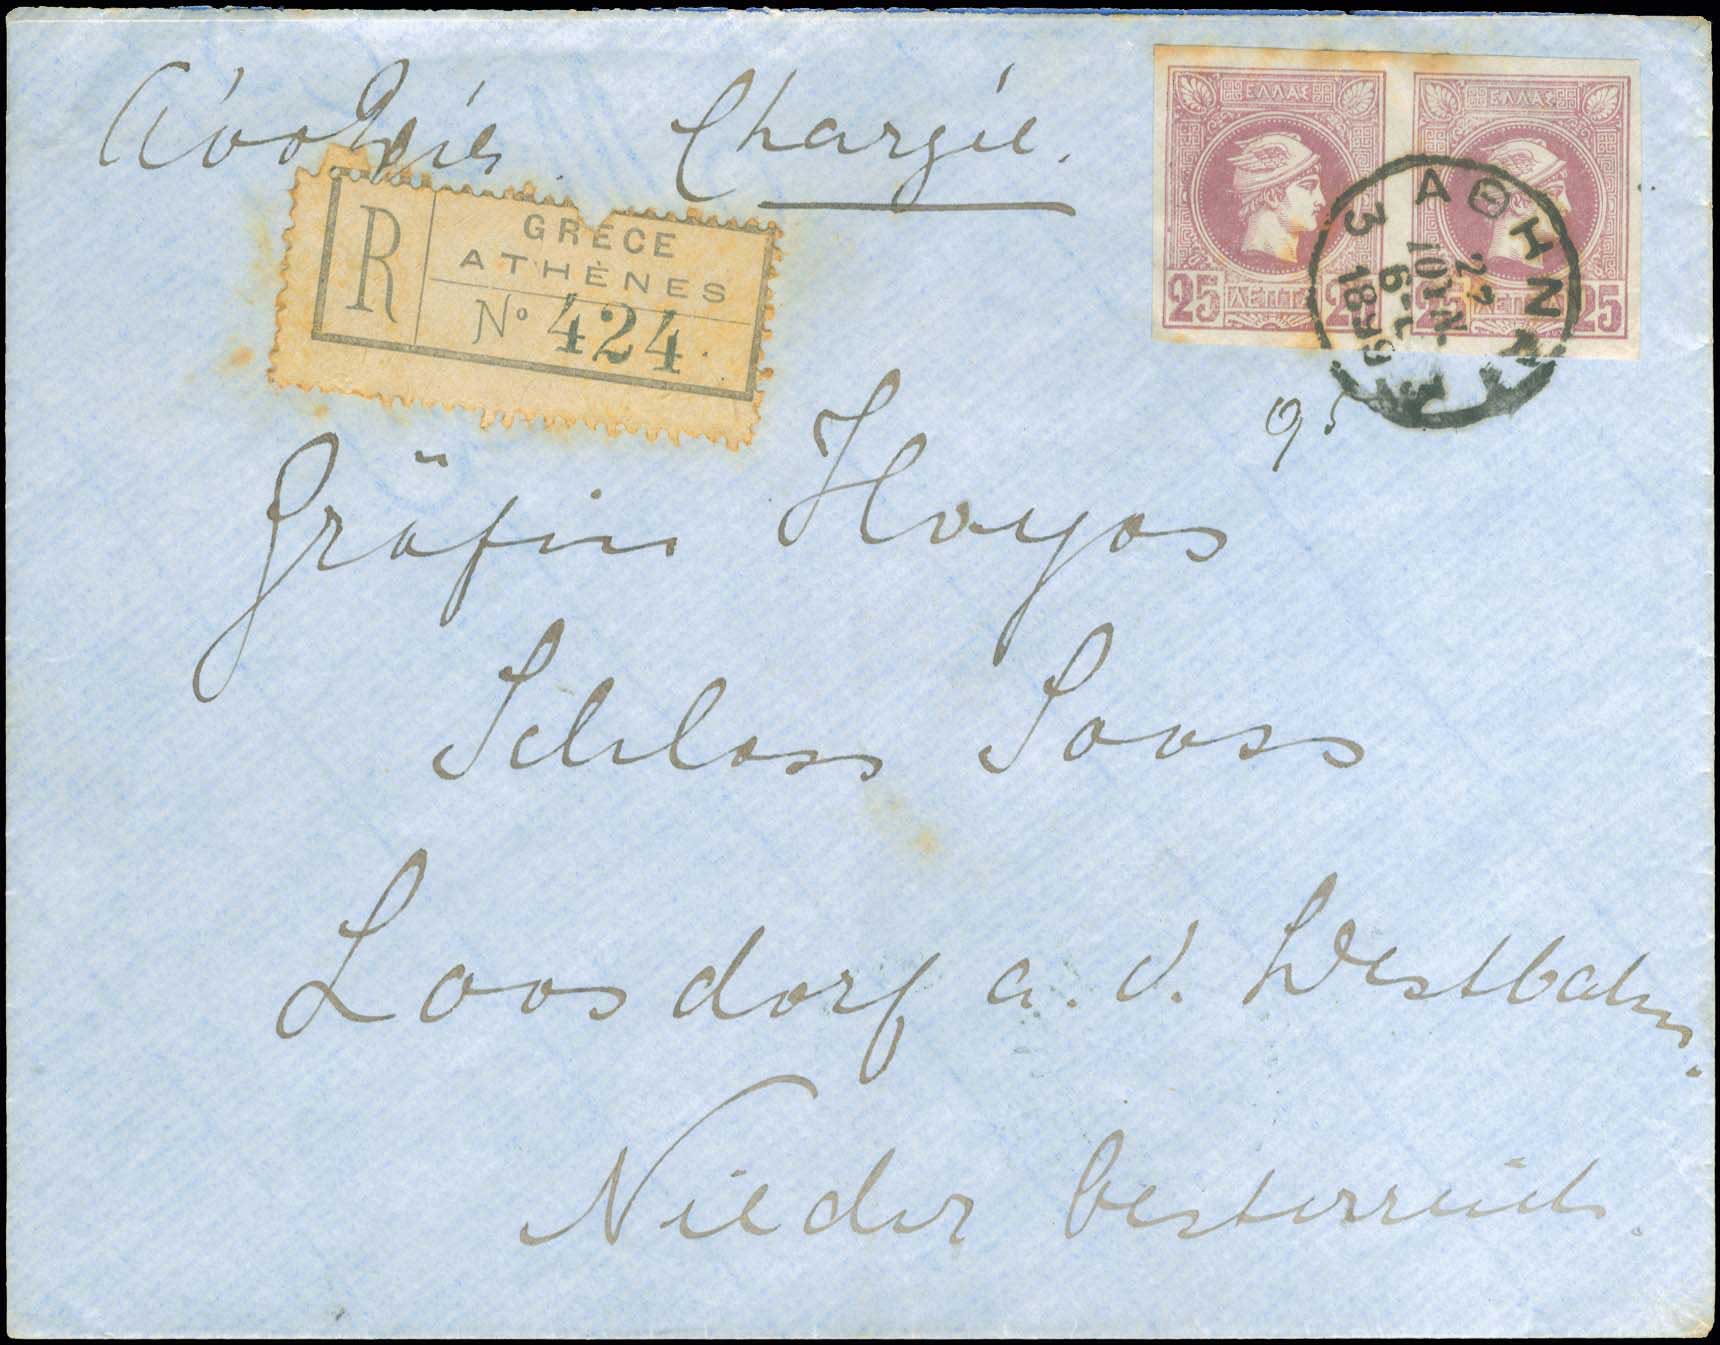 Chargée.
R
GRÈCE
ATHÈNES
No 424
ΕΛΛΑΣ ΕΛΛΑΣ
25 ΛΕΠΤΑ 25 25 ΛΕΠΤΑ 25
ΑΘΗΝΑΙ 3
22
ΙΟΥΝ.
1899
95
Gräfin Hoyos
Schloss Sooss
Loosdorf a. d. Westbahn.
Nieder Oesterreich.